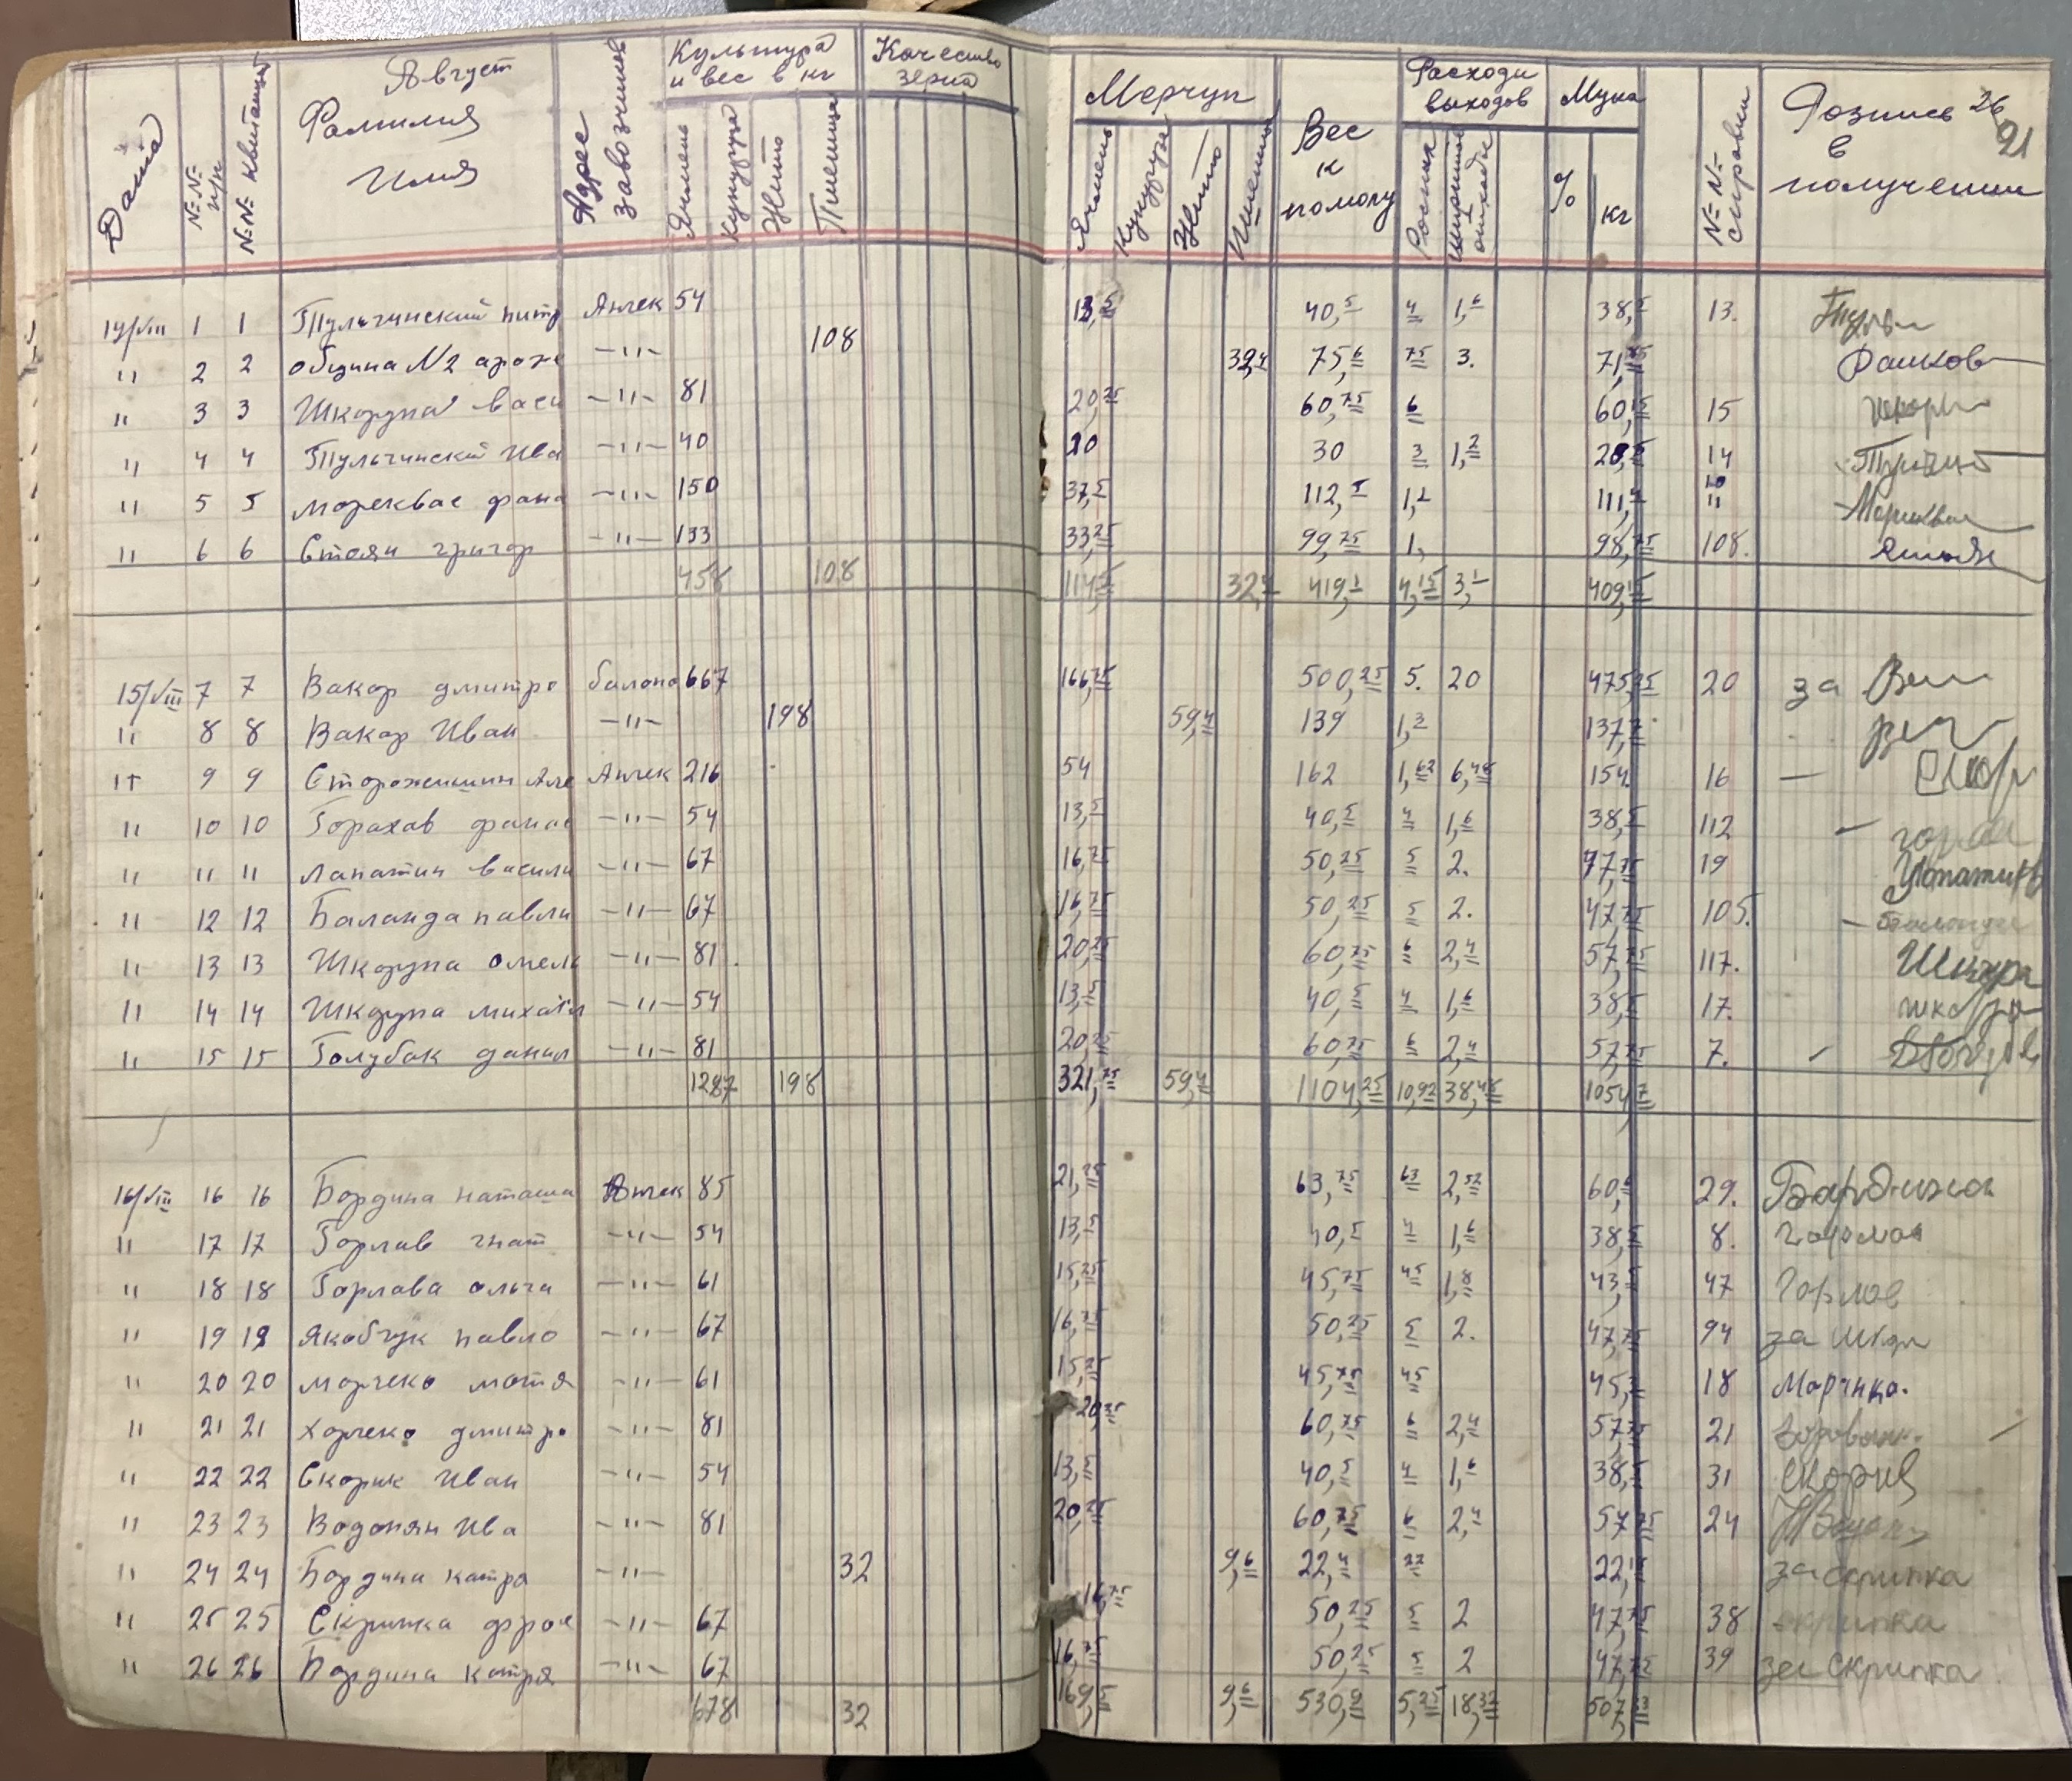 Август
Дата №№ п/п №№ Квитанций Фамилия Имя Адрес завозчиков Культура и вес в кг Качество зерна
Ячмень Кукуруза Жито Пшеница
Мерчук Вес к помолу Расходи выходов Мука №№ справки Розпись в получении 26 21
Ячмень Кукуруза Жито Пшеница % кг
14/VIII 1 1 Тульчинский питр Анчек 54 13,5 40,5 4 1,6 38,5 13.
" 2 2 община N2 -"- 108 32,4 75,6 75 3. 71,85
" 3 3 Шкорупа васи -"- 81 20,25 60,75 6 60,15 15
" 4 4 Тульчинский Ива -"- 40 10 30 3 1,2 28,5 14
" 5 5 мореквас фана -"- 150 37,5 112,5 1,1 111,4
" 6 6 Стоян григор -"- 133 33,25 99,75 1, 98,75 108.
458 108 114,5 32,4 419,1 4,15 3,1 409,15
15/VIII 7 7 Вакар дмитро 667 166,75 500,25 5. 20 475,25 20 за
" 8 8 Вакар Иван -"- 198 59,4 139 1,3 137,7
" 9 9 Анчек 216 54 162 1,62 6,48 154 16 —
" 10 10 Горахав фанас -"- 54 13,5 40,5 4 1,6 38,5 112
" 11 11 лапатин васили -"- 67 16,75 50,25 5 2. 47,75 19
" 12 12 Баланда павли -"- 67 16,75 50,25 5 2. 47,75 105.
" 13 13 Шкорупа омель -"- 81 20,25 60,75 6 2,4 57,75 117.
" 14 14 Шкорупа михаил -"- 54 13,5 40,5 4 1,6 38,5 17.
" 15 15 Голубак данил -"- 81 20,25 60,75 6 2,4 57,75 7.
1287 198 321,75 59,4 1104,25 10,92 38,48 1054,7
16/VIII 16 16 Бордина наташа Анчек 85 21,25 63,75 63 2,52 60,6 29. Бардина
" 17 17 Горлав гнат -"- 54 13,5 40,5 4 1,6 38,5 8.
" 18 18 Горлава ольга -"- 61 15,25 45,75 45 1,8 43,5 47 Горлов
" 19 19 Якобчук павло -"- 67 16,75 50,25 5 2. 47,75 94 за
" 20 20 марчеко мотя -"- 61 15,25 45,75 45 45,3 18
" 21 21 харчеко дмитро -"- 81 20,25 60,75 6 2,4 57,75 21
" 22 22 Скорик Иван -"- 54 13,5 40,5 4 1,6 38,5 31 Скорик
" 23 23 Водопян Ива -"- 81 20,25 60,75 6 2,4 57,75 24
" 24 24 Бордина катра -"- 32 9,6 22,4 22 22,18 за скрипка
" 25 25 Скрипка фрос -"- 67 16,75 50,25 5 2 47,75 38 скрипка
" 26 26 Бордина катря -"- 67 16,75 50,25 5 2 47,75 39 за скрипка
678 32 169,5 9,6 530,9 5,25 18,32 507,33